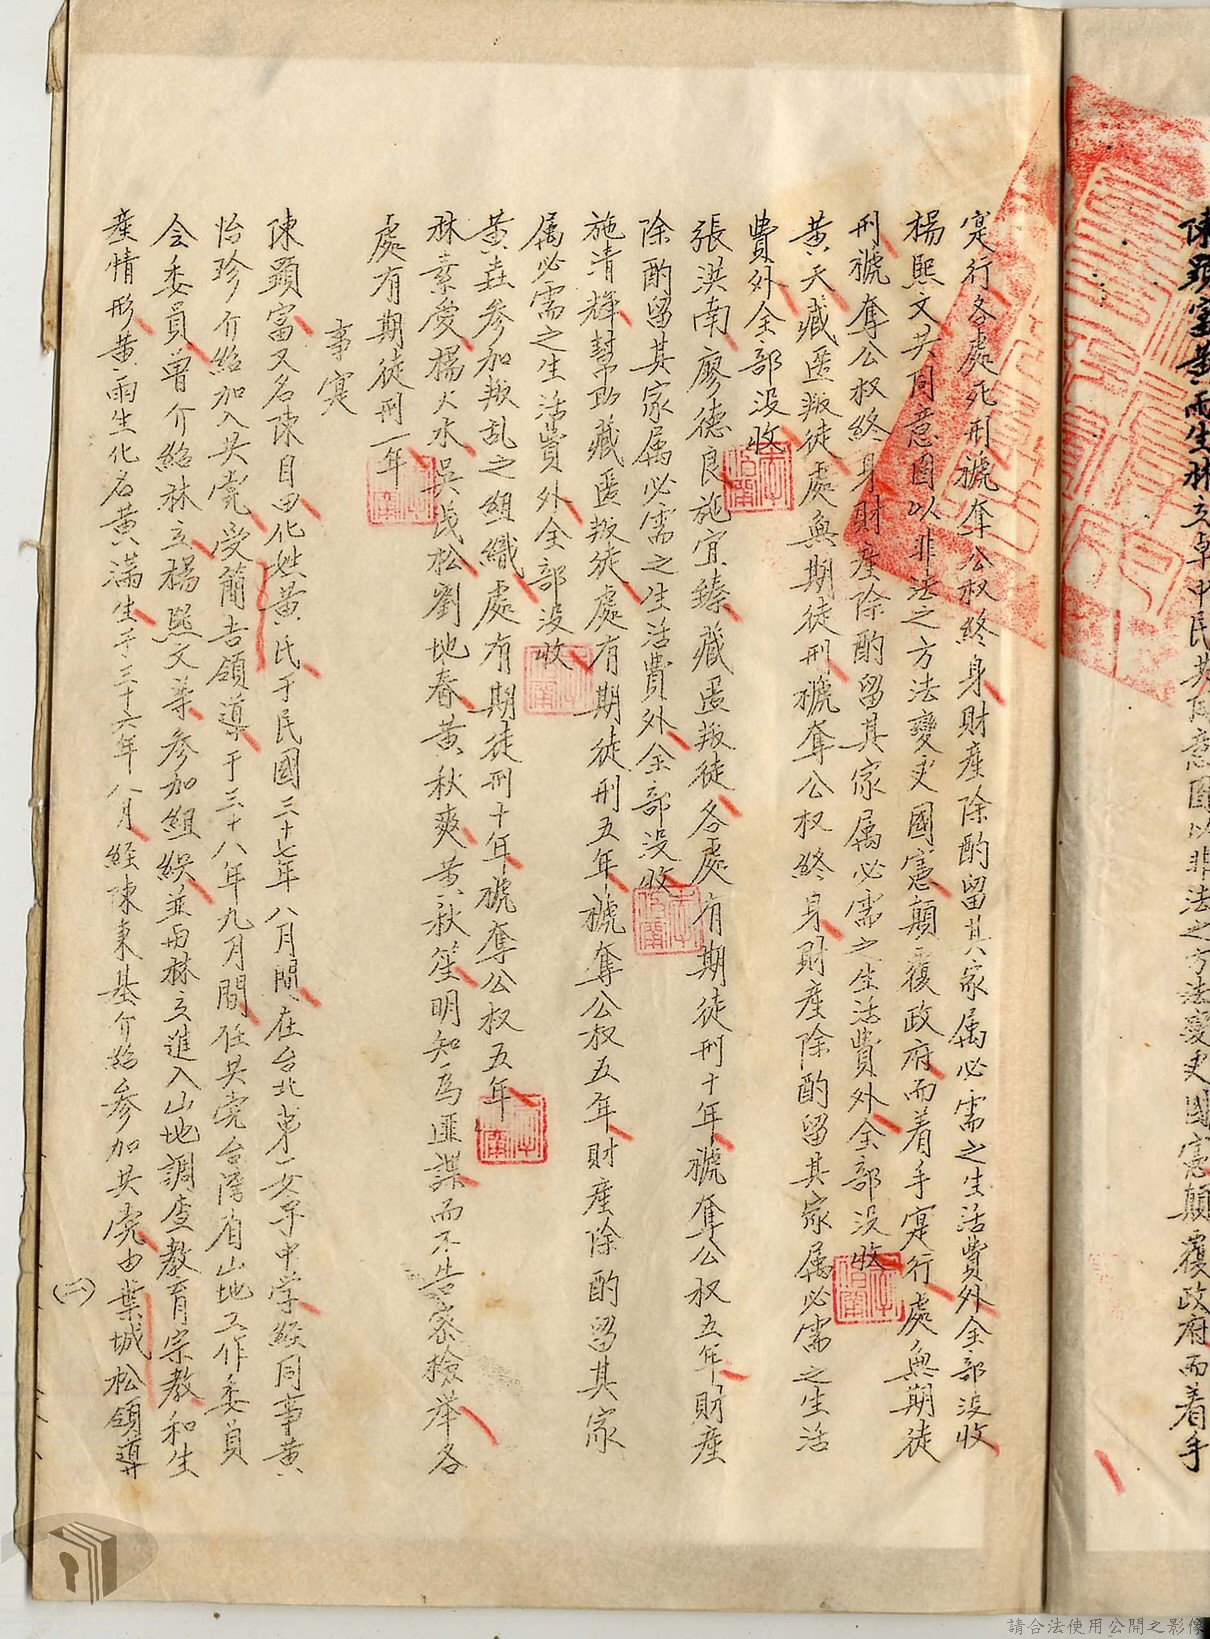 陳顕富黄雨生林立卓中民共同意圖以非法之方法變更國憲顛覆政府而着手
寔行各處死刑褫奪公权終身財産除酌留其家属必需之生活費外全部没收
楊熙文共同意圖以非法之方法變更國憲顛覆政府而着手寔行處無期徒
刑褫奪公权終身財産除酌留其家属必需之生活費外全部没收
黄天藏匿叛徒處無期徒刑褫奪公权終身財産除酌留其家属必需之生活
費外全部没收
張洪南廖德良施宜臻藏匿叛徒各處有期徒刑十年褫奪公权五年財産
除酌留其家属必需之生活費外全部没收
施清輝幫助藏匿叛徒處有期徒刑五年褫奪公权五年財産除酌留其家
属必需之生活費外全部没收
黄垚参加叛乱之組織處有期徒刑十年褫奪公权五年
林素愛楊火水吳茂松劉地春黄秋爽黄秋笙明知為匪諜而不告密檢举各
處有期徒刑一年
事寔
陳顕富又名陳自由化姓黄氏于民國三十七年八月間在台北第一女子中学経同事黄
怡珍介紹加入共党受簡吉領導于三十八年九月間任共党台湾省山地工作委員
会委員曾介紹林立楊熙文等参加組織並與林立進入山地調查教育宗教和生
産情形黄雨生化名黄满生于三十六年八月経陳東基介紹参加共党由葉城松領導
(二)
請合法使用公開之影像